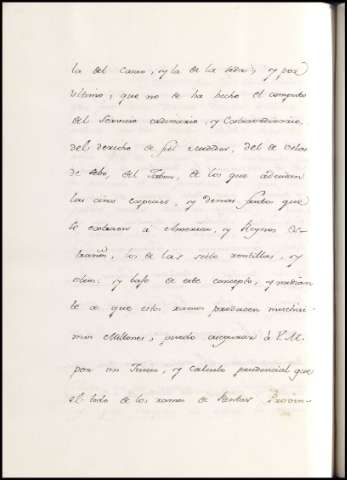 la del Cacao, y la de la Seda; y por
ultimo, que no se ha hecho el computo
del Servicio ordinario, y Extraordinario,
del derecho de fiel medidor, del de velas
de sebo, del Jabon, de los que adeudan
las cinas especies, y demas frutos que
se extraen á America, y Reynos Es-
traños, los de las siete rentillas, y
otros; y bajo de este concepto, y
se a que estos ramos producen muchisi-
mos Millones, puedo asegurar á V.M.
por un Juicio, y Calculo prudencial que
el todo de los ramos de Rentas Provin-